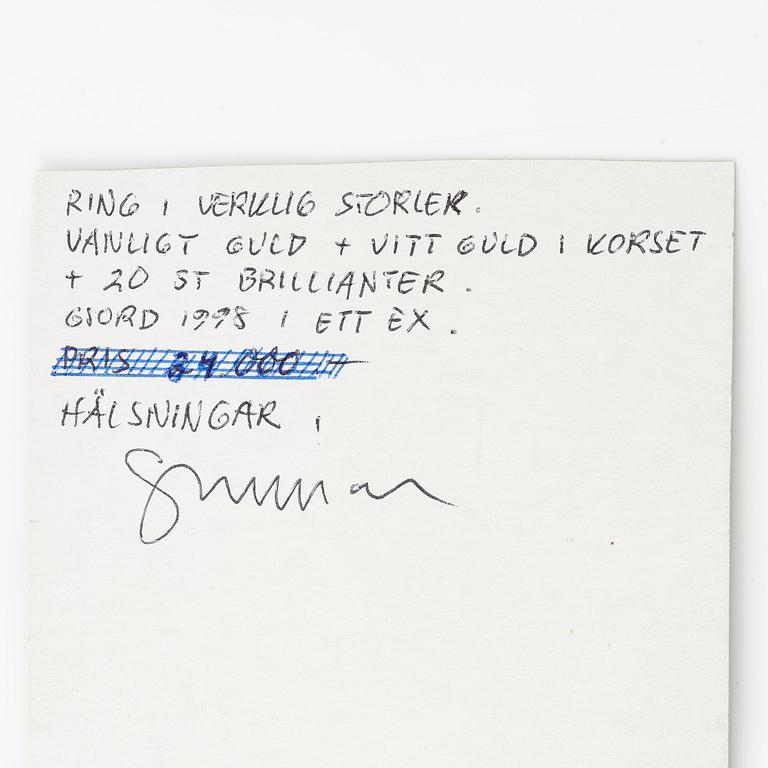 RING I VERKLIG STORLEK.
VANLIGT GULD + VITT GULD I KORSET
+ 20 ST BRILLIANTER.
GJORD 1998 I ETT EX.
PRIS 24.000:-
HÄLSNINGAR,
Gunnar